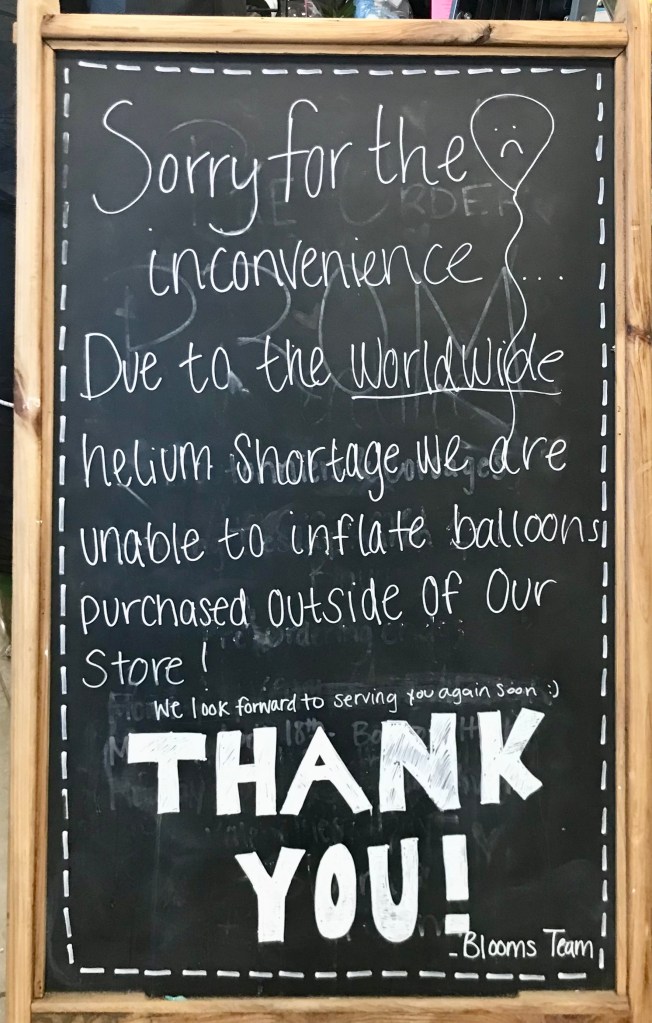 Sorry for the
inconvenience ...
Due to the worldwide
helium shortage we are
unable to inflate balloons
purchased outside of our
store!
We look forward to serving you again soon :)
THANK
YOU!
- Blooms Team